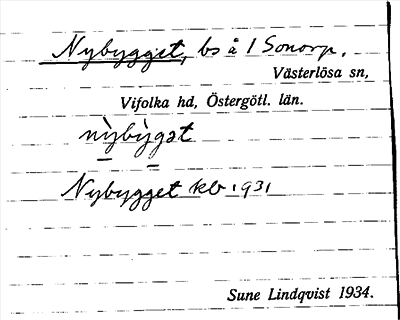 Nybygget, bs å 1 Sonorp.
Västerlösa sn,
Vifolka hd, Östergötl. län.
nỳbỳgət
Nybygget kb 1931
Sune Lindqvist 1934.